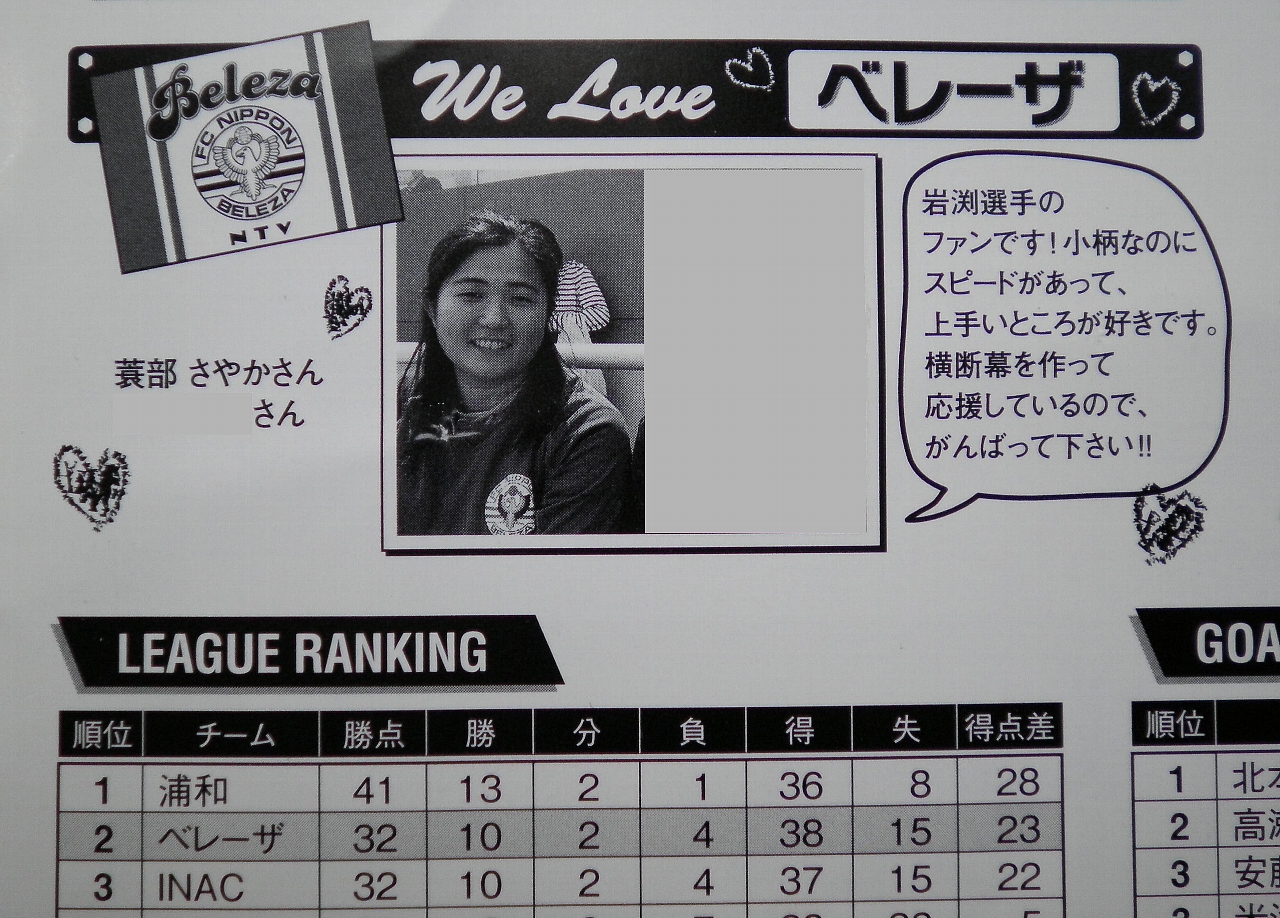 Beleza
FC NIPPON
BELEZA
NTV
We Love
ベレーザ
岩渕選手の
ファンです!小柄なのに
スピードがあって、
上手いところが好きです。
横断幕を作って
応援しているので、
がんばって下さい!!
蓑部 さやかさん
さん
BELEZA
LEAGUE RANKING
順位 チーム 勝点 勝 分 負 得 失 得点差
1 浦和 41 13 2 1 36 8 28
2 ベレーザ 32 10 2 4 38 15 23
3 INAC 32 10 2 4 37 15 22
GOA
順位
1 北本
2 高瀬
3 安藤